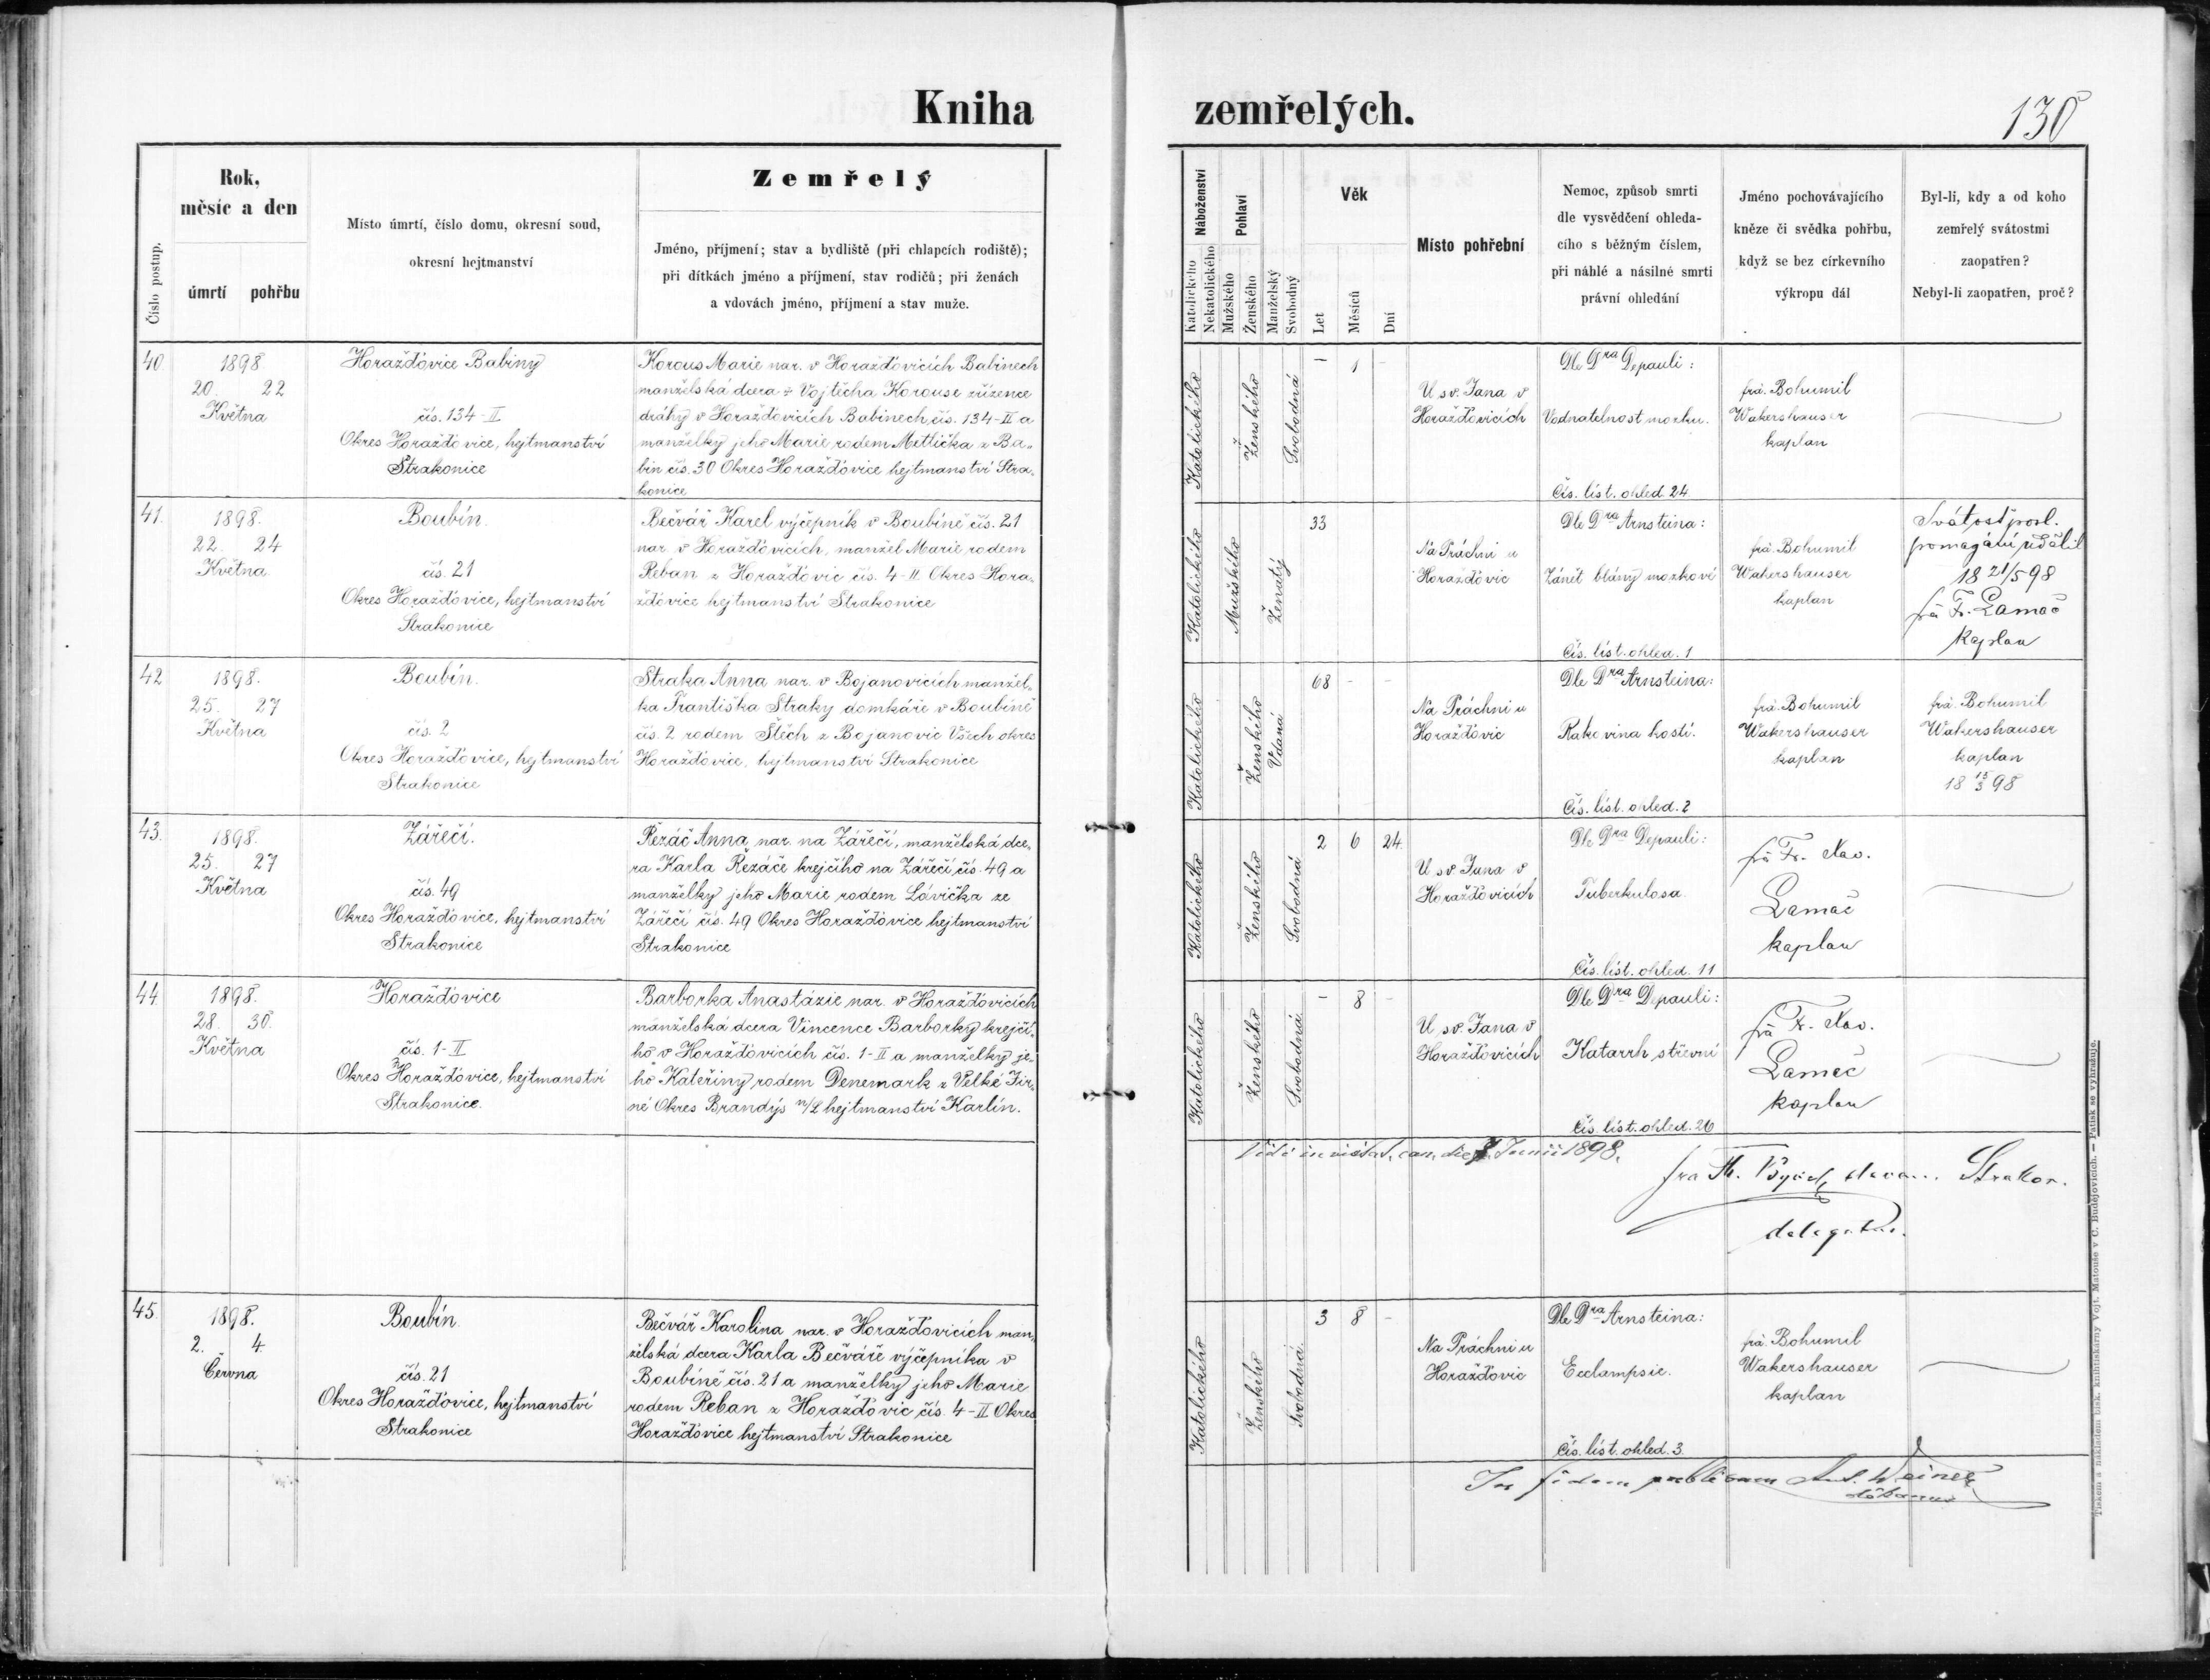 Kniha zemřelých.
130
Číslo postup.
Rok,
měsíc a den
úmrtí pohřbu
Místo úmrtí, číslo domu, okresní soud,
okresní hejtmanství
Zemřelý
Jméno, příjmení; stav a bydliště (při chlapcích rodiště);
při dítkách jméno a příjmení, stav rodičů; při ženách
a vdovách jméno, příjmení a stav muže.
Náboženství
Katolického
Nekatolického
Pohlaví
Mužského
Ženského
Manželský
Svobodný
Věk
Let
Měsíců
Dní
Místo pohřební
Nemoc, způsob smrti
dle vysvědčení ohleda-
cího s běžným číslem,
při náhlé a násilné smrti
právní ohledání
Jméno pochovávajícího
kněze či svědka pohřbu,
když se bez církevního
výkropu dál
Byl-li, kdy a od koho
zemřelý svátostmi
zaopatřen?
Nebyl-li zaopatřen, proč?
40.
1898
20. 22
Května
Horažďovice Babiny
čís. 134-II
Okres Horažďovice, hejtmanství
Strakonice
Korous Marie nar. v Horažďovicích Babinech
manželská dcera ÷ Vojtěcha Korouse zřízence
dráhy v Horažďovicích Babinech čís. 134-II a
manželky jeho Marie rodem Metlička z Ba-
bin čís. 30 Okres Horažďovice hejtmanství Stra-
konice
Katolického
Ženského
Svobodná
- 1 -
U sv. Jana v
Horažďovicích
Dle Dra Depauli:
Vodnatelnost mozku.
Čís. líst. ohled. 24
frá. Bohumil
Wakershauser
kaplan
41.
1898.
22. 24
Května
Boubín.
čís. 21
Okres Horažďovice, hejtmanství
Strakonice
Bečvář Karel výčepník v Boubíně čís. 21
nar. v Horažďovicích, manžel Marie rodem
Reban z Horažďovic čís. 4-II. Okres Hora-
žďovice hejtmanství Strakonice
Katolického
Mužského
Ženatý
33
Na Práchni u
Horažďovic
Dle Dra Arnsteina:
Zánět blány mozkové
Čís. líst. ohled. 1
frá. Bohumil
Wakershauser
kaplan
Svátost posl.
pomazání udělil
18 21/5 98
frá Fr. Lamač
kaplan
42
1898.
25. 27
Května
Boubín.
čís. 2
Okres Horažďovice, hejtmanství
Strakonice
Straka Anna nar. v Bojanovicích manžel-
ka Františka Straky domkáře v Boubíně
čís. 2 rodem Štěch z Bojanovic Všech okres
Horažďovice, hejtmanství Strakonice
Katolického
Ženského
Vdaná
68 - -
Na Práchni u
Horažďovic
Dle Dra Arnsteina:
Rakovina kostí.
Čís. líst. ohled. 2
frá. Bohumil
Wakershauser
kaplan
frá. Bohumil
Wakershauser
kaplan
18 15/3 98
43.
1898.
25. 27
Května
Zářečí.
čís. 49
Okres Horažďovice, hejtmanství
Strakonice
Řezáč Anna nar. na Zářečí, manželská dce-
ra Karla Řezáče krejčího na Zářečí čís. 49 a
manželky jeho Marie rodem Lávička ze
Zářečí čís. 49 Okres Horažďovice hejtmanství
Strakonice
Katolického
Ženského
Svobodná
2 6 24.
U sv Jana v
Horažďovicích
Dle Dra Depauli:
Tuberkulosa.
Čís. líst. ohled. 11
frá Fr. Xav.
Lamač
kaplan
44.
1898.
28. 30.
Května
Horažďovice
čís. 1-II
Okres Horažďovice, hejtmanství
Strakonice.
Barborka Anastázie nar. v Horažďovicích
manželská dcera Vincence Barborky krejčí-
ho v Horažďovicích čís. 1-II a manželky je-
ho Kateřiny rodem Denemark z Velké Jir-
né Okres Brandýs n/L hejtmanství Karlín.
Katolického
Ženského
Svobodná
- 8 -
U sv. Jana v
Horažďovicích
Dle Dra Depauli:
Katarrh střevní
Čís. líst. ohled. 26
frá Fr. Xav.
Lamač
kaplan
Vidi in visitat. can. die Junii 1898.
delegatus.
45.
1898.
2. 4.
Června
Boubín.
čís. 21
Okres Horažďovice, hejtmanství
Strakonice
Bečvář Karolina nar. v Horažďovicích man-
želská dcera Karla Bečváře výčepníka v
Boubíně čís. 21 a manželky jeho Marie
rodem Reban z Horažďovic čís. 4-II Okres
Horažďovice hejtmanství Strakonice
Katolického
Ženského
Svobodná
3 8 -
Na Práchni u
Horažďovic
Dle Dra Arnsteina:
Ecclampsie.
Čís. líst. ohled. 3.
frá. Bohumil
Wakershauser
kaplan
In fidem publicam Ant. Weiner
děkanus
Tiskem a nákladem bisk. knihtiskárny Vojt. Matouše v Č. Budějovicích. — Patisk se vyhražuje.